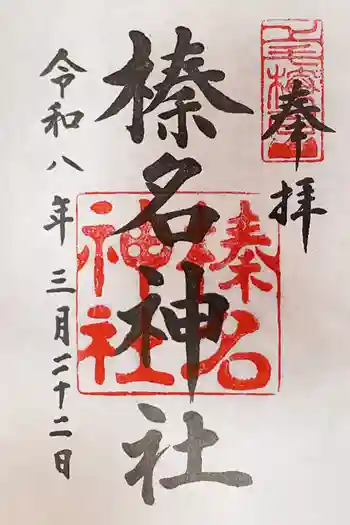 奉拝
榛名神社
令和八年三月二十二日
榛名
神社